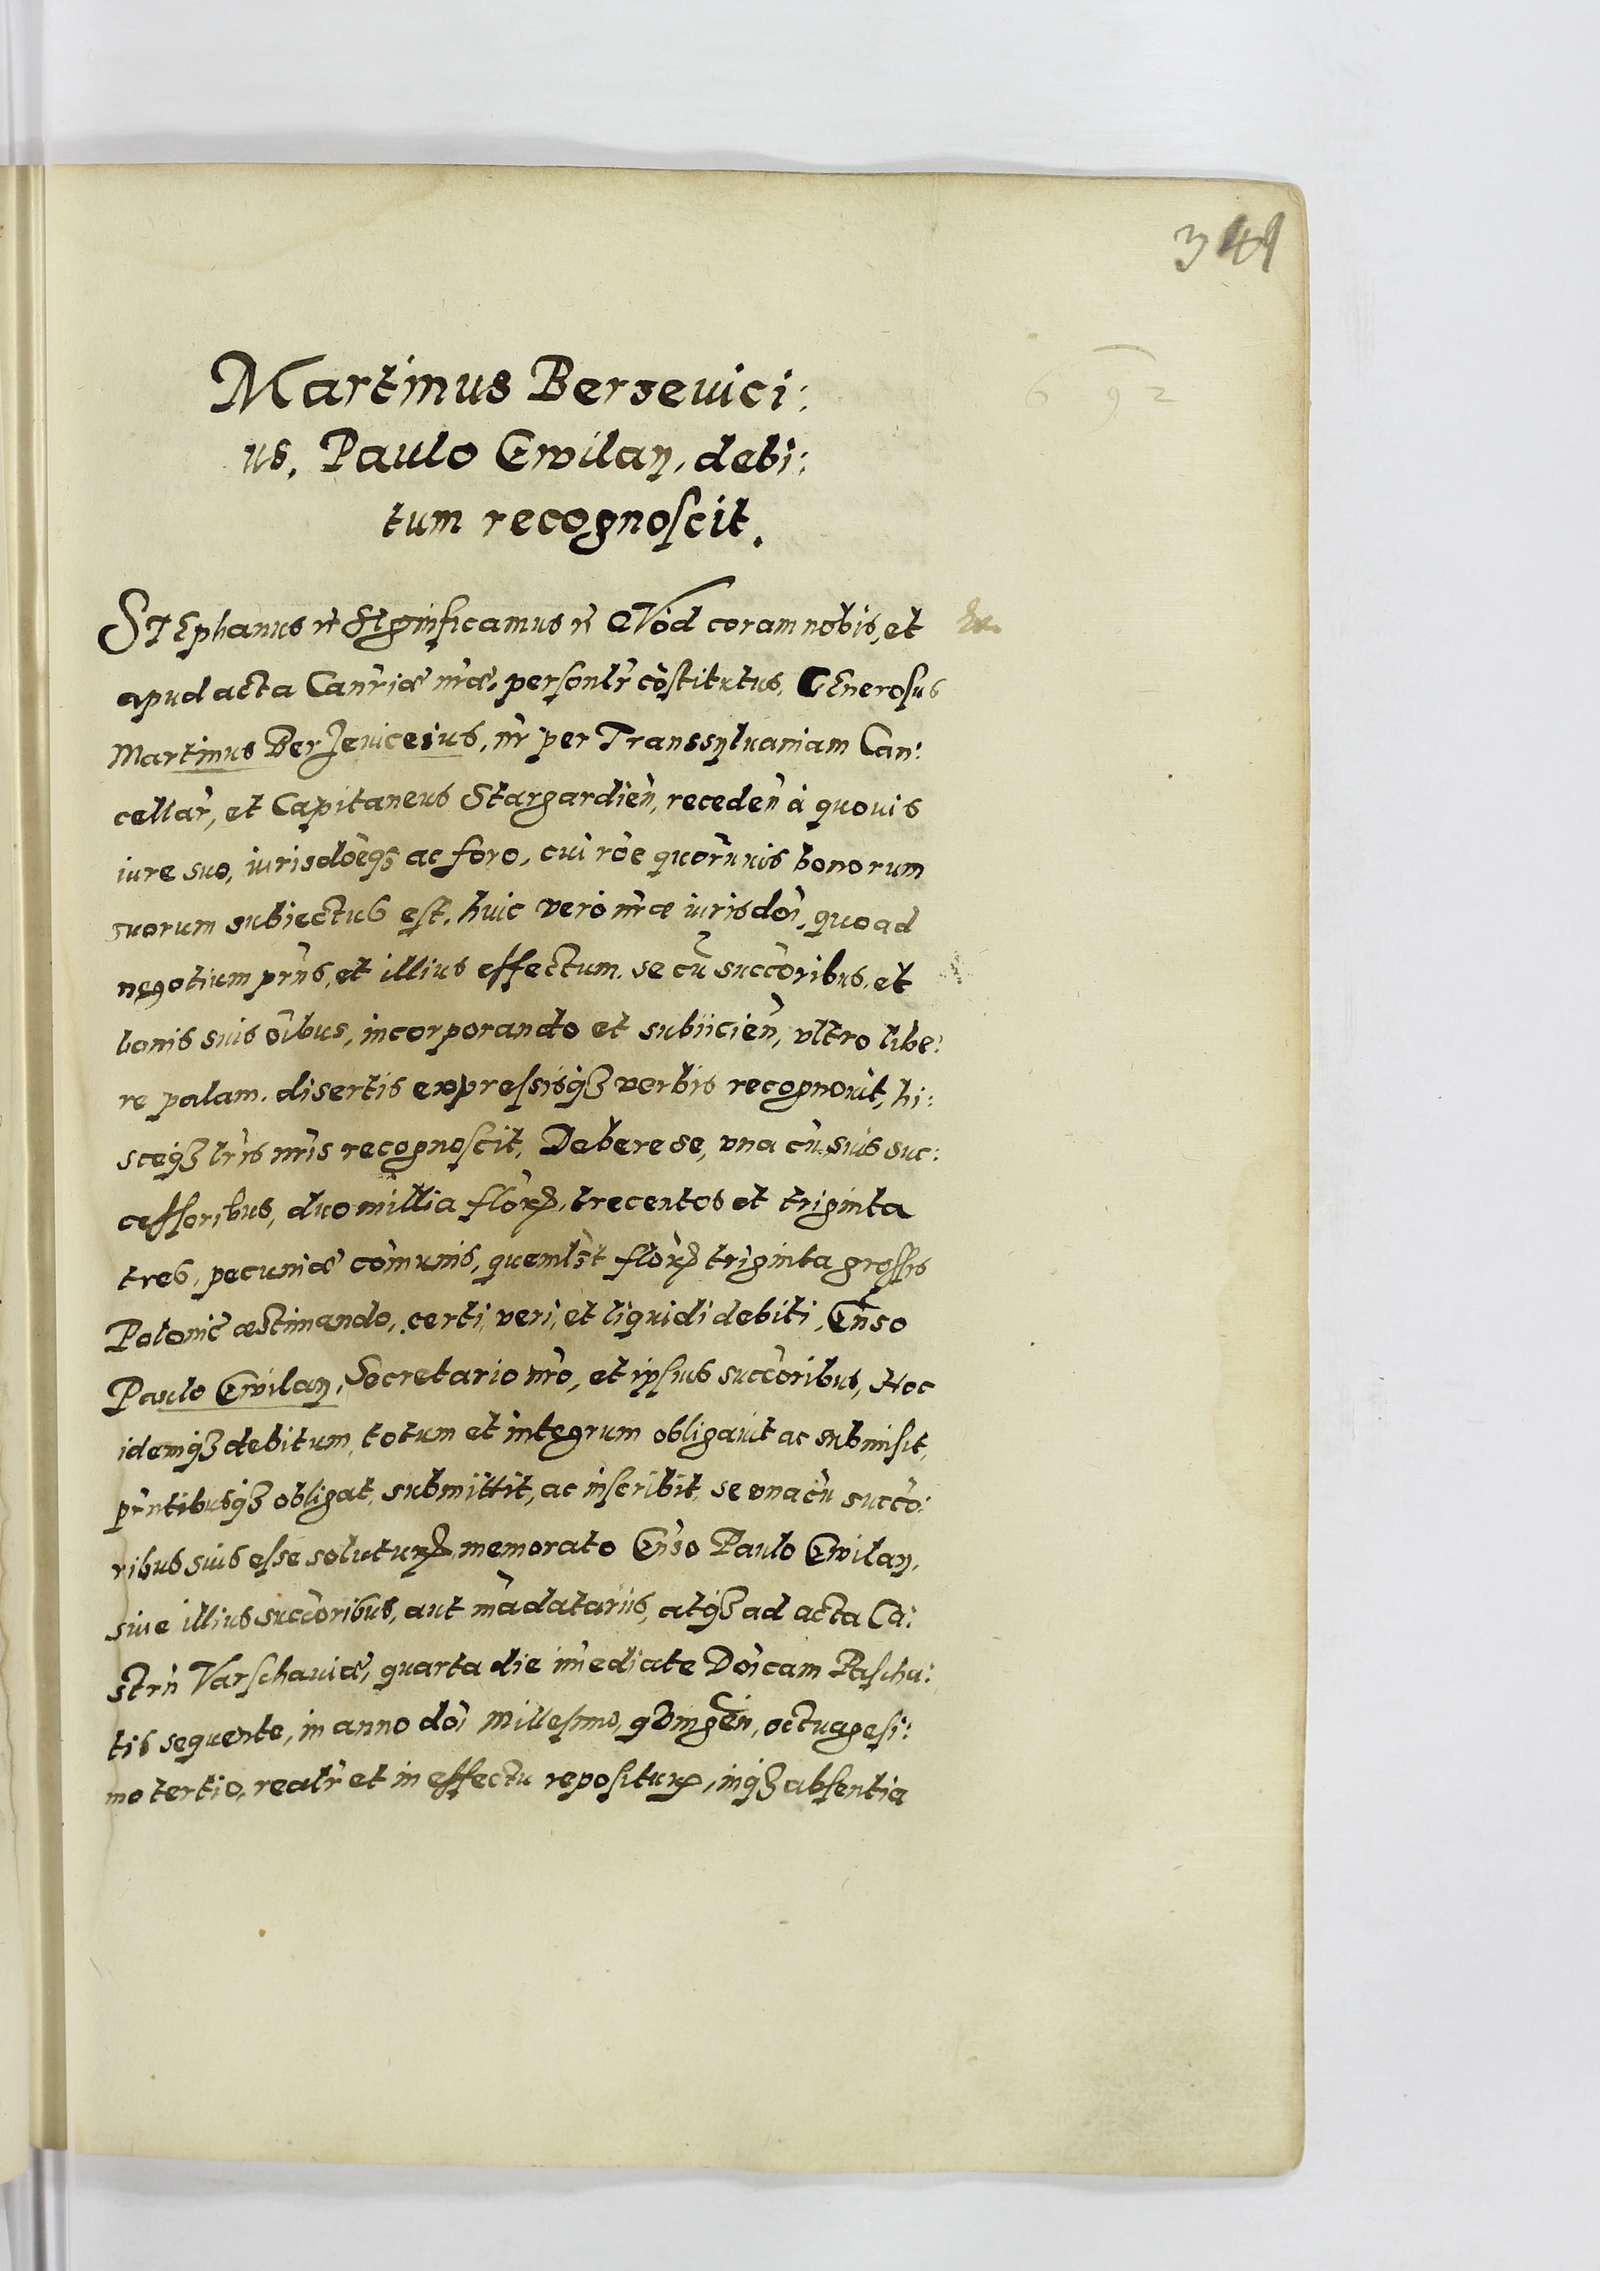 341
Martinus Berzeuici:
us, Paulo Gwilaÿ, debi:
tum recognoscit.
STEphanus rc̃ SIgnificamus rc̃ QVod coram nobis, et
apud acta Canr̃iæ nr̃æ, personlr̃ cõstitutus, GEnerosus
Martinus Berzeuiceius, nr̃ per Transsylvaniam Can:
cellar̃, et Capitaneus Stargardieñ, recedeñ à quovis
iure suo, iurisdõeqȝ ac foro, cui rõe quorũvis bonorum
suorum subiectus est, huic vero nr̃æ iurisdõi, quo ad
negotium pr̃ns, et illius effectum, se cũ succõribus, et
bonis suis õibus, incorporando et subiicieñ, vltro libe:
re palam, disertis expressisqȝ verbis recognovit, hi:
sceqȝ lr̃is nr̃is recognoscit, Debere se, vna cũ suis suc:
cessoribus, duo millia florꝝ, trecentos et triginta
tres, pecuniæ cõmunis, quemlb̃t florꝝ triginta grossis
Polonic̃ æstimando, certi, veri, et liquidi debiti, Gñso
Paulo Gwilaÿ, Secretario nr̃o, et ipsius succõribus, Hoc
idemqȝ debitum, totum et integrum obligavit ac submisit,
pr̃ntibusqȝ obligat, submittit, ac inscribit, se vna cũ succõ:
ribus suis esse soluturꝝ, memorato Gñso Paulo Gwilaÿ,
sive illius succõribus, aut mãdatariis, atqȝ ad acta Ca:
str̃ñ Varschaviæ, quarta die im̃ediate Dõicam Pascha:
tis sequente, in anno dõi Millesimo, qũingeñ, octuagesi:
mo tertio, realr̃ et in effectu repositurꝝ, inqȝ absentia